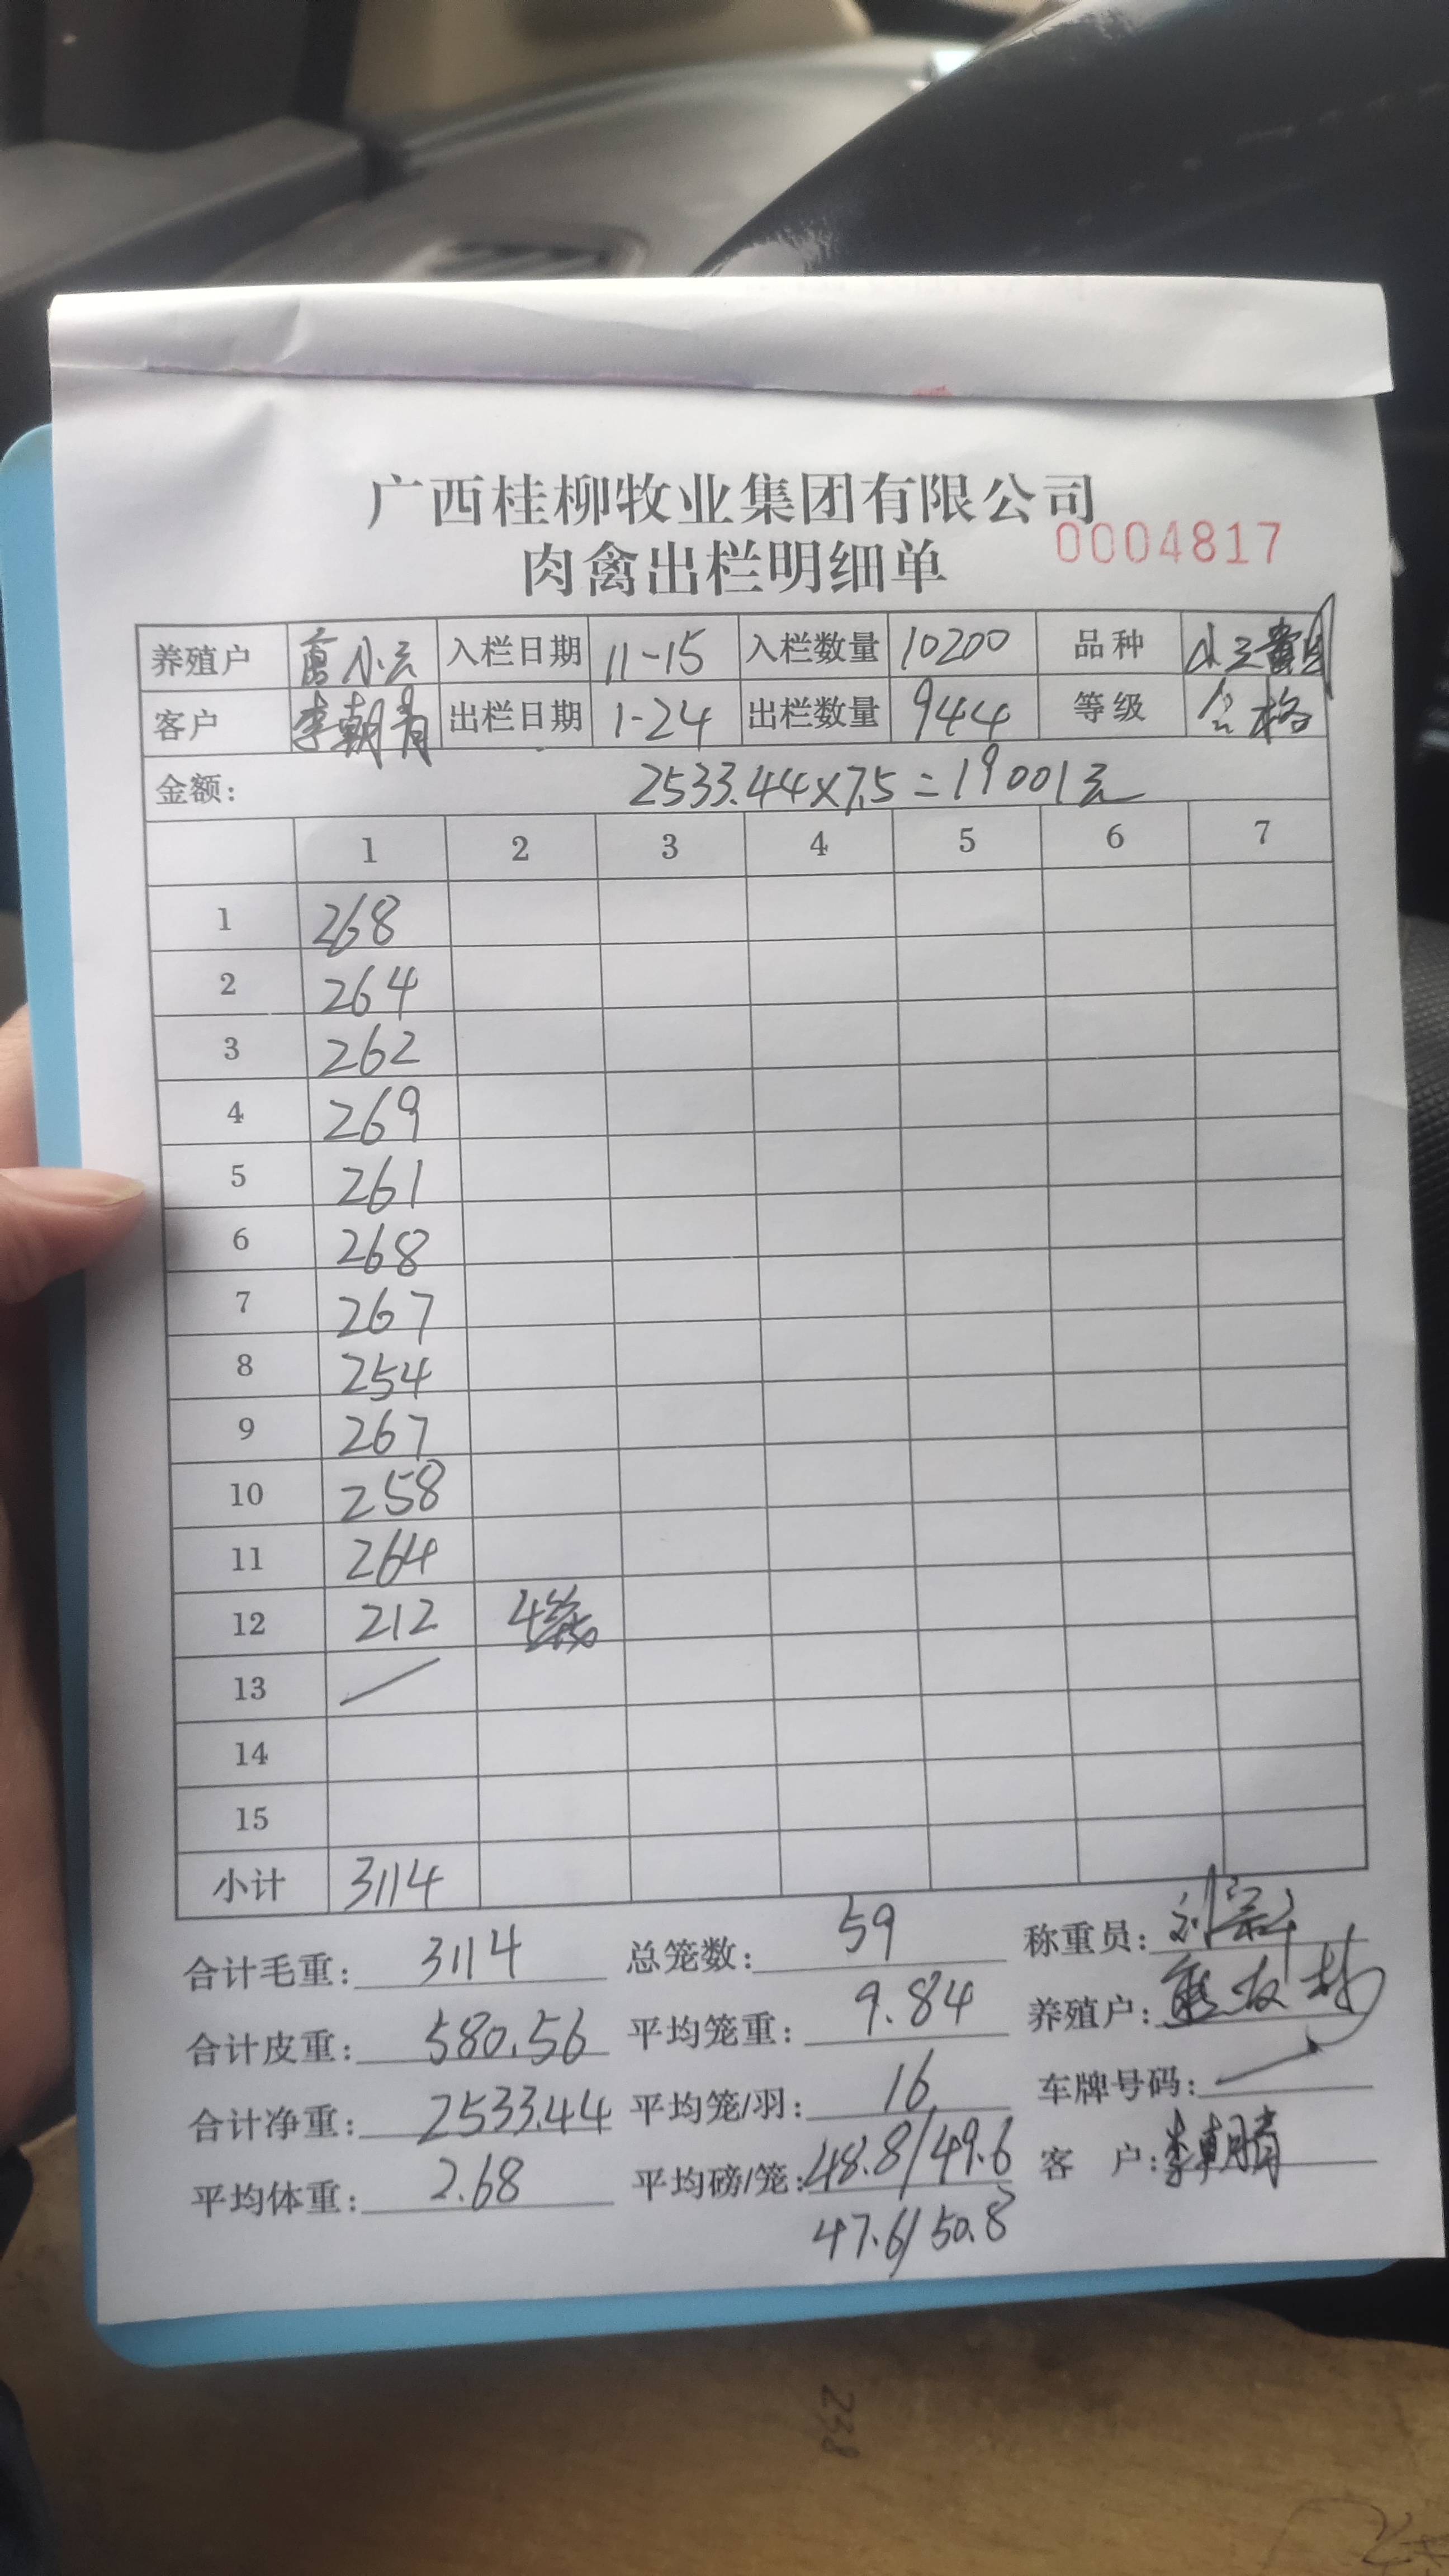 广西桂柳牧业集团有限公司
肉禽出栏明细单 0004817
养殖户 小云 入栏日期 11-15 入栏数量 10200 品种
客户 李朝青 出栏日期 1-24 出栏数量 944 等级 合格
金额: 2533.44×7.5=19001元
1 2 3 4 5 6 7
1 268
2 264
3 262
4 269
5 261
6 268
7 267
8 254
9 267
10 258
11 264
12 212 4
13 /
14
15
小计 3114
合计毛重: 3114 总笼数: 59 称重员: 刘
合计皮重: 580.56 平均笼重: 9.84 养殖户:
合计净重: 2533.44 平均笼/羽: 16 车牌号码: /
平均体重: 2.68 平均磅/笼: 48.8/49.6 客 户: 李朝晴
47.6/50.8
238